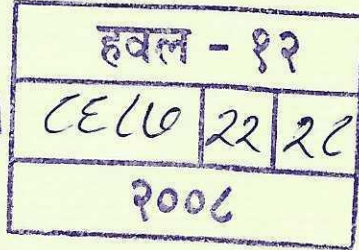 हवल - १२
८६८७ २२ २८
२००८